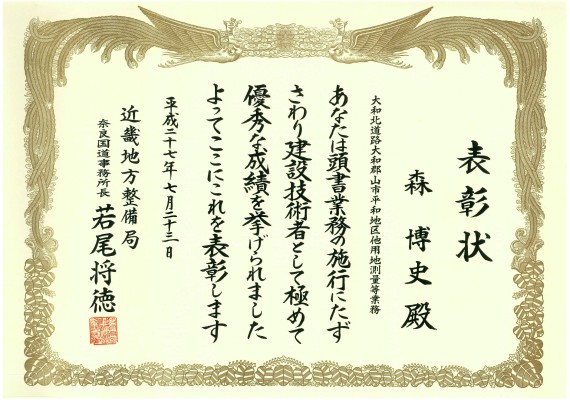 表彰状
森博史殿
大和北道路大和郡山市平和地区他用地測量等業務
あなたは頭書業務の施行にたず
さわり建設技術者として極めて
優秀な成績を挙げられました
よってここにこれを表彰します
平成二十七年七月二十三日
近畿地方整備局
奈良国道事務所長 若尾将徳